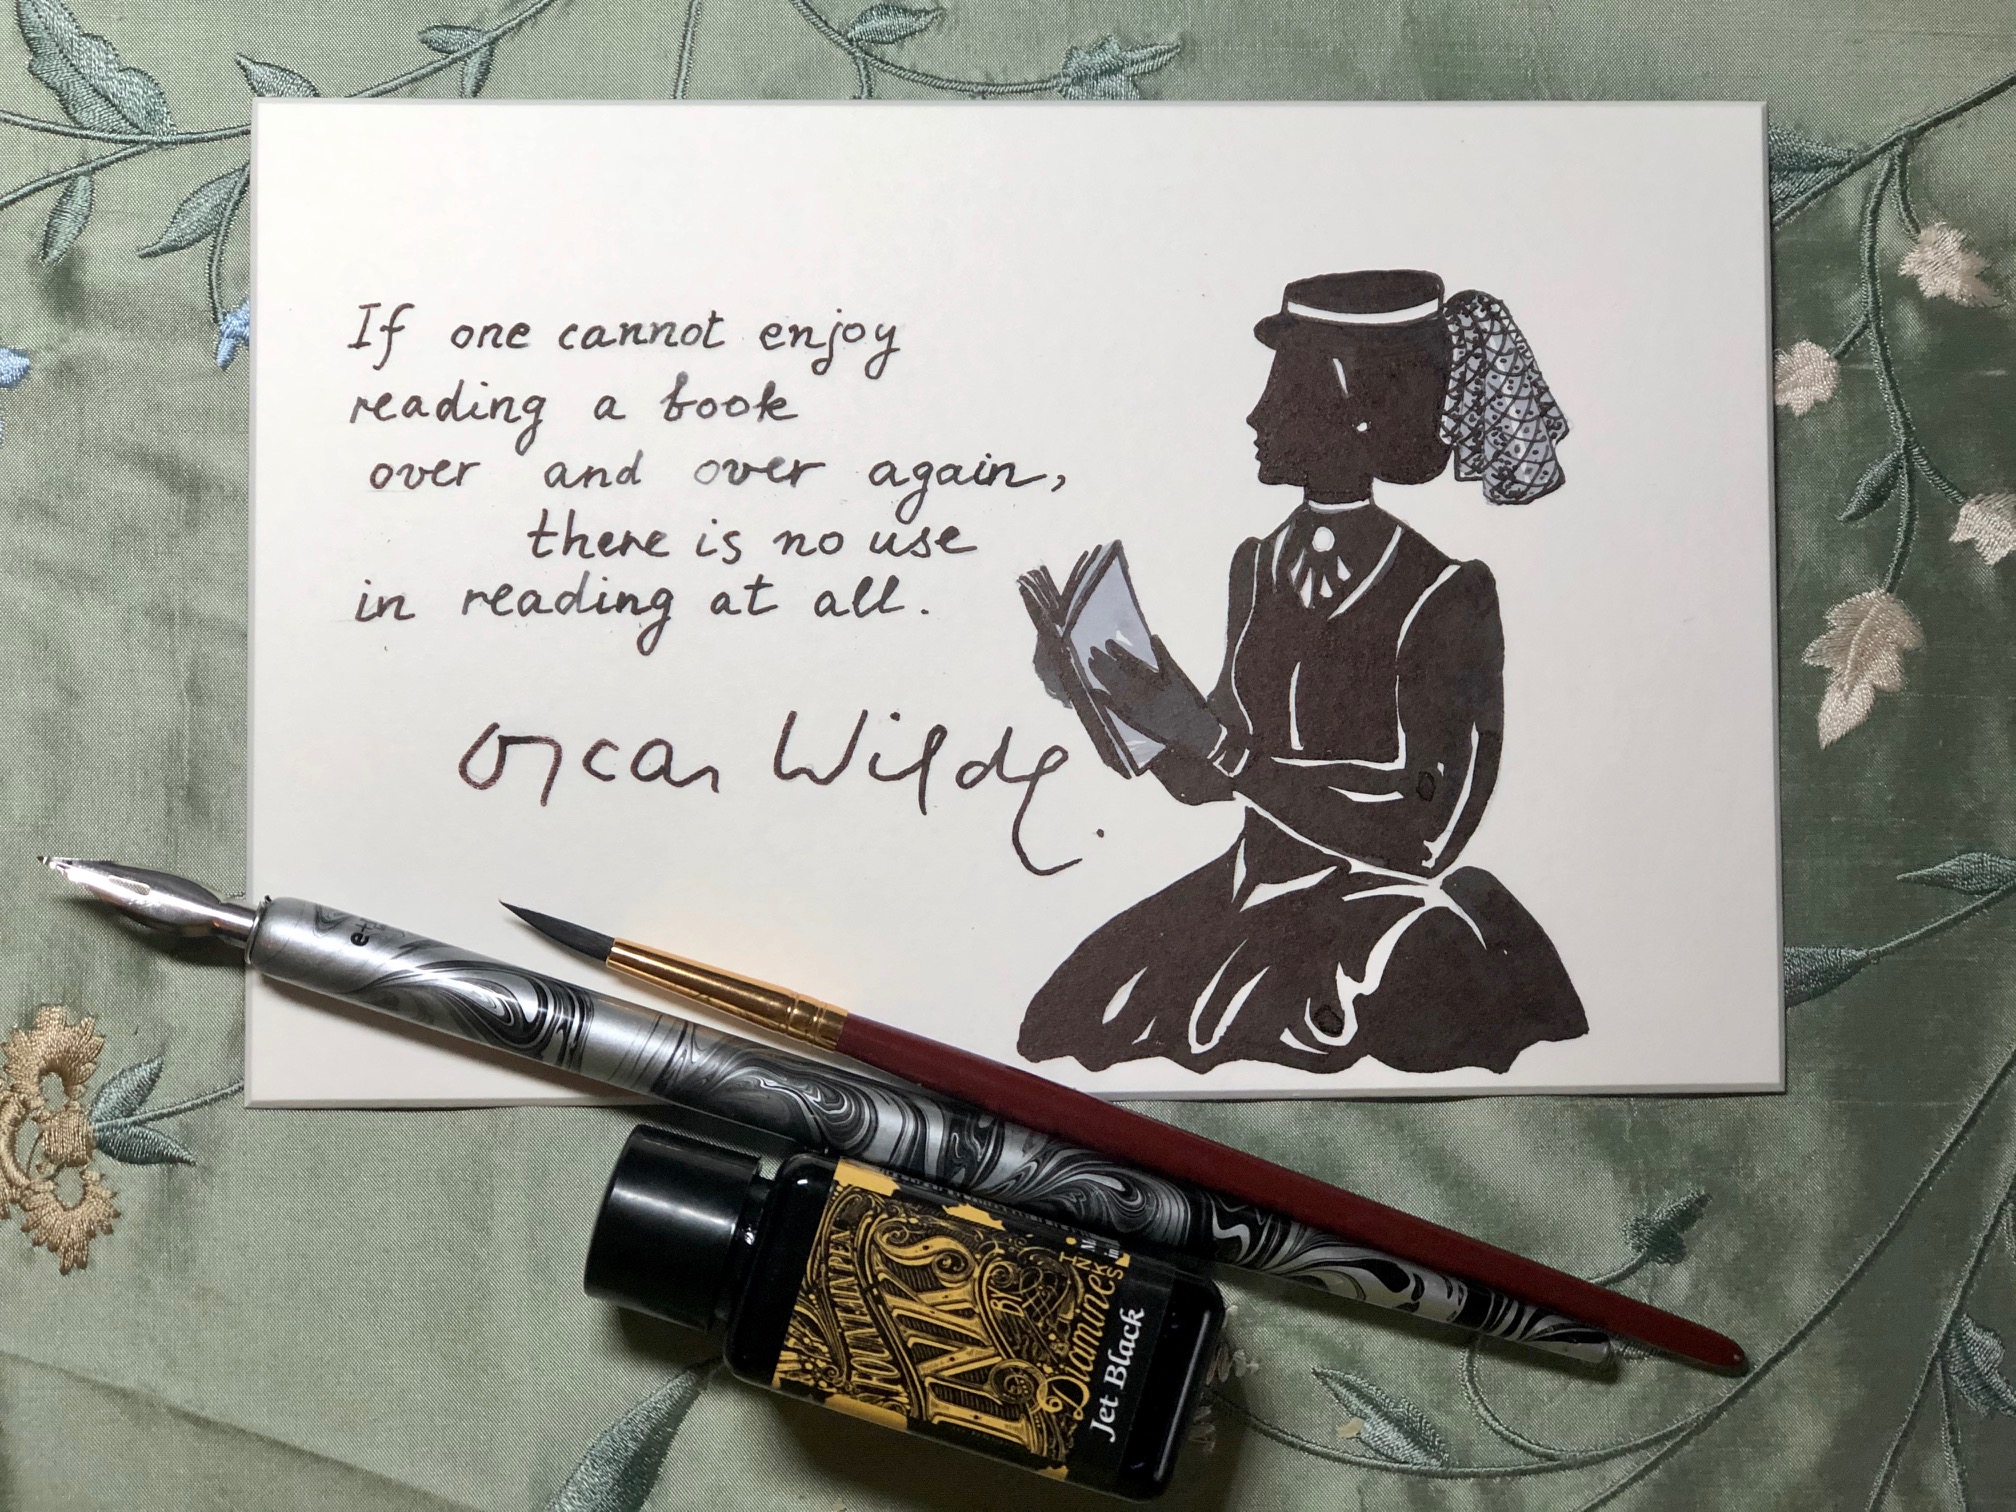 If one cannot enjoy
reading a book
over and over again,
there is no use
in reading at all.
Oscar Wilde.
FOUNTAIN PEN
INKS
BY
Diamine
INKS
Jet Black